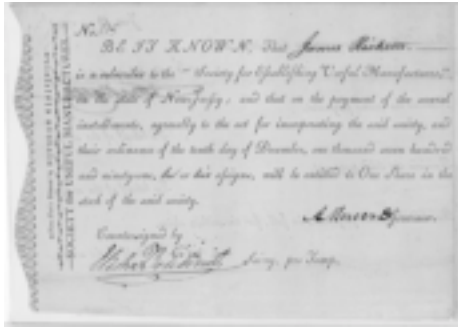 No.
BE IT KNOWN, That James
is a subscriber to the "Society for Establishing Useful Manufactures,"
in the state of New Jersey, and that on the payment of the several
instalments, agreeably to the act for incorporating the said society, and
their ordinance of the tenth day of December, one thousand seven hundred
and ninety-one, he or his assigns, will be entitled to One Share in the
stock of the said society.
Governor.
Countersigned by
Secry. pro Temp.
SOCIETY for USEFUL MANUFACTURES